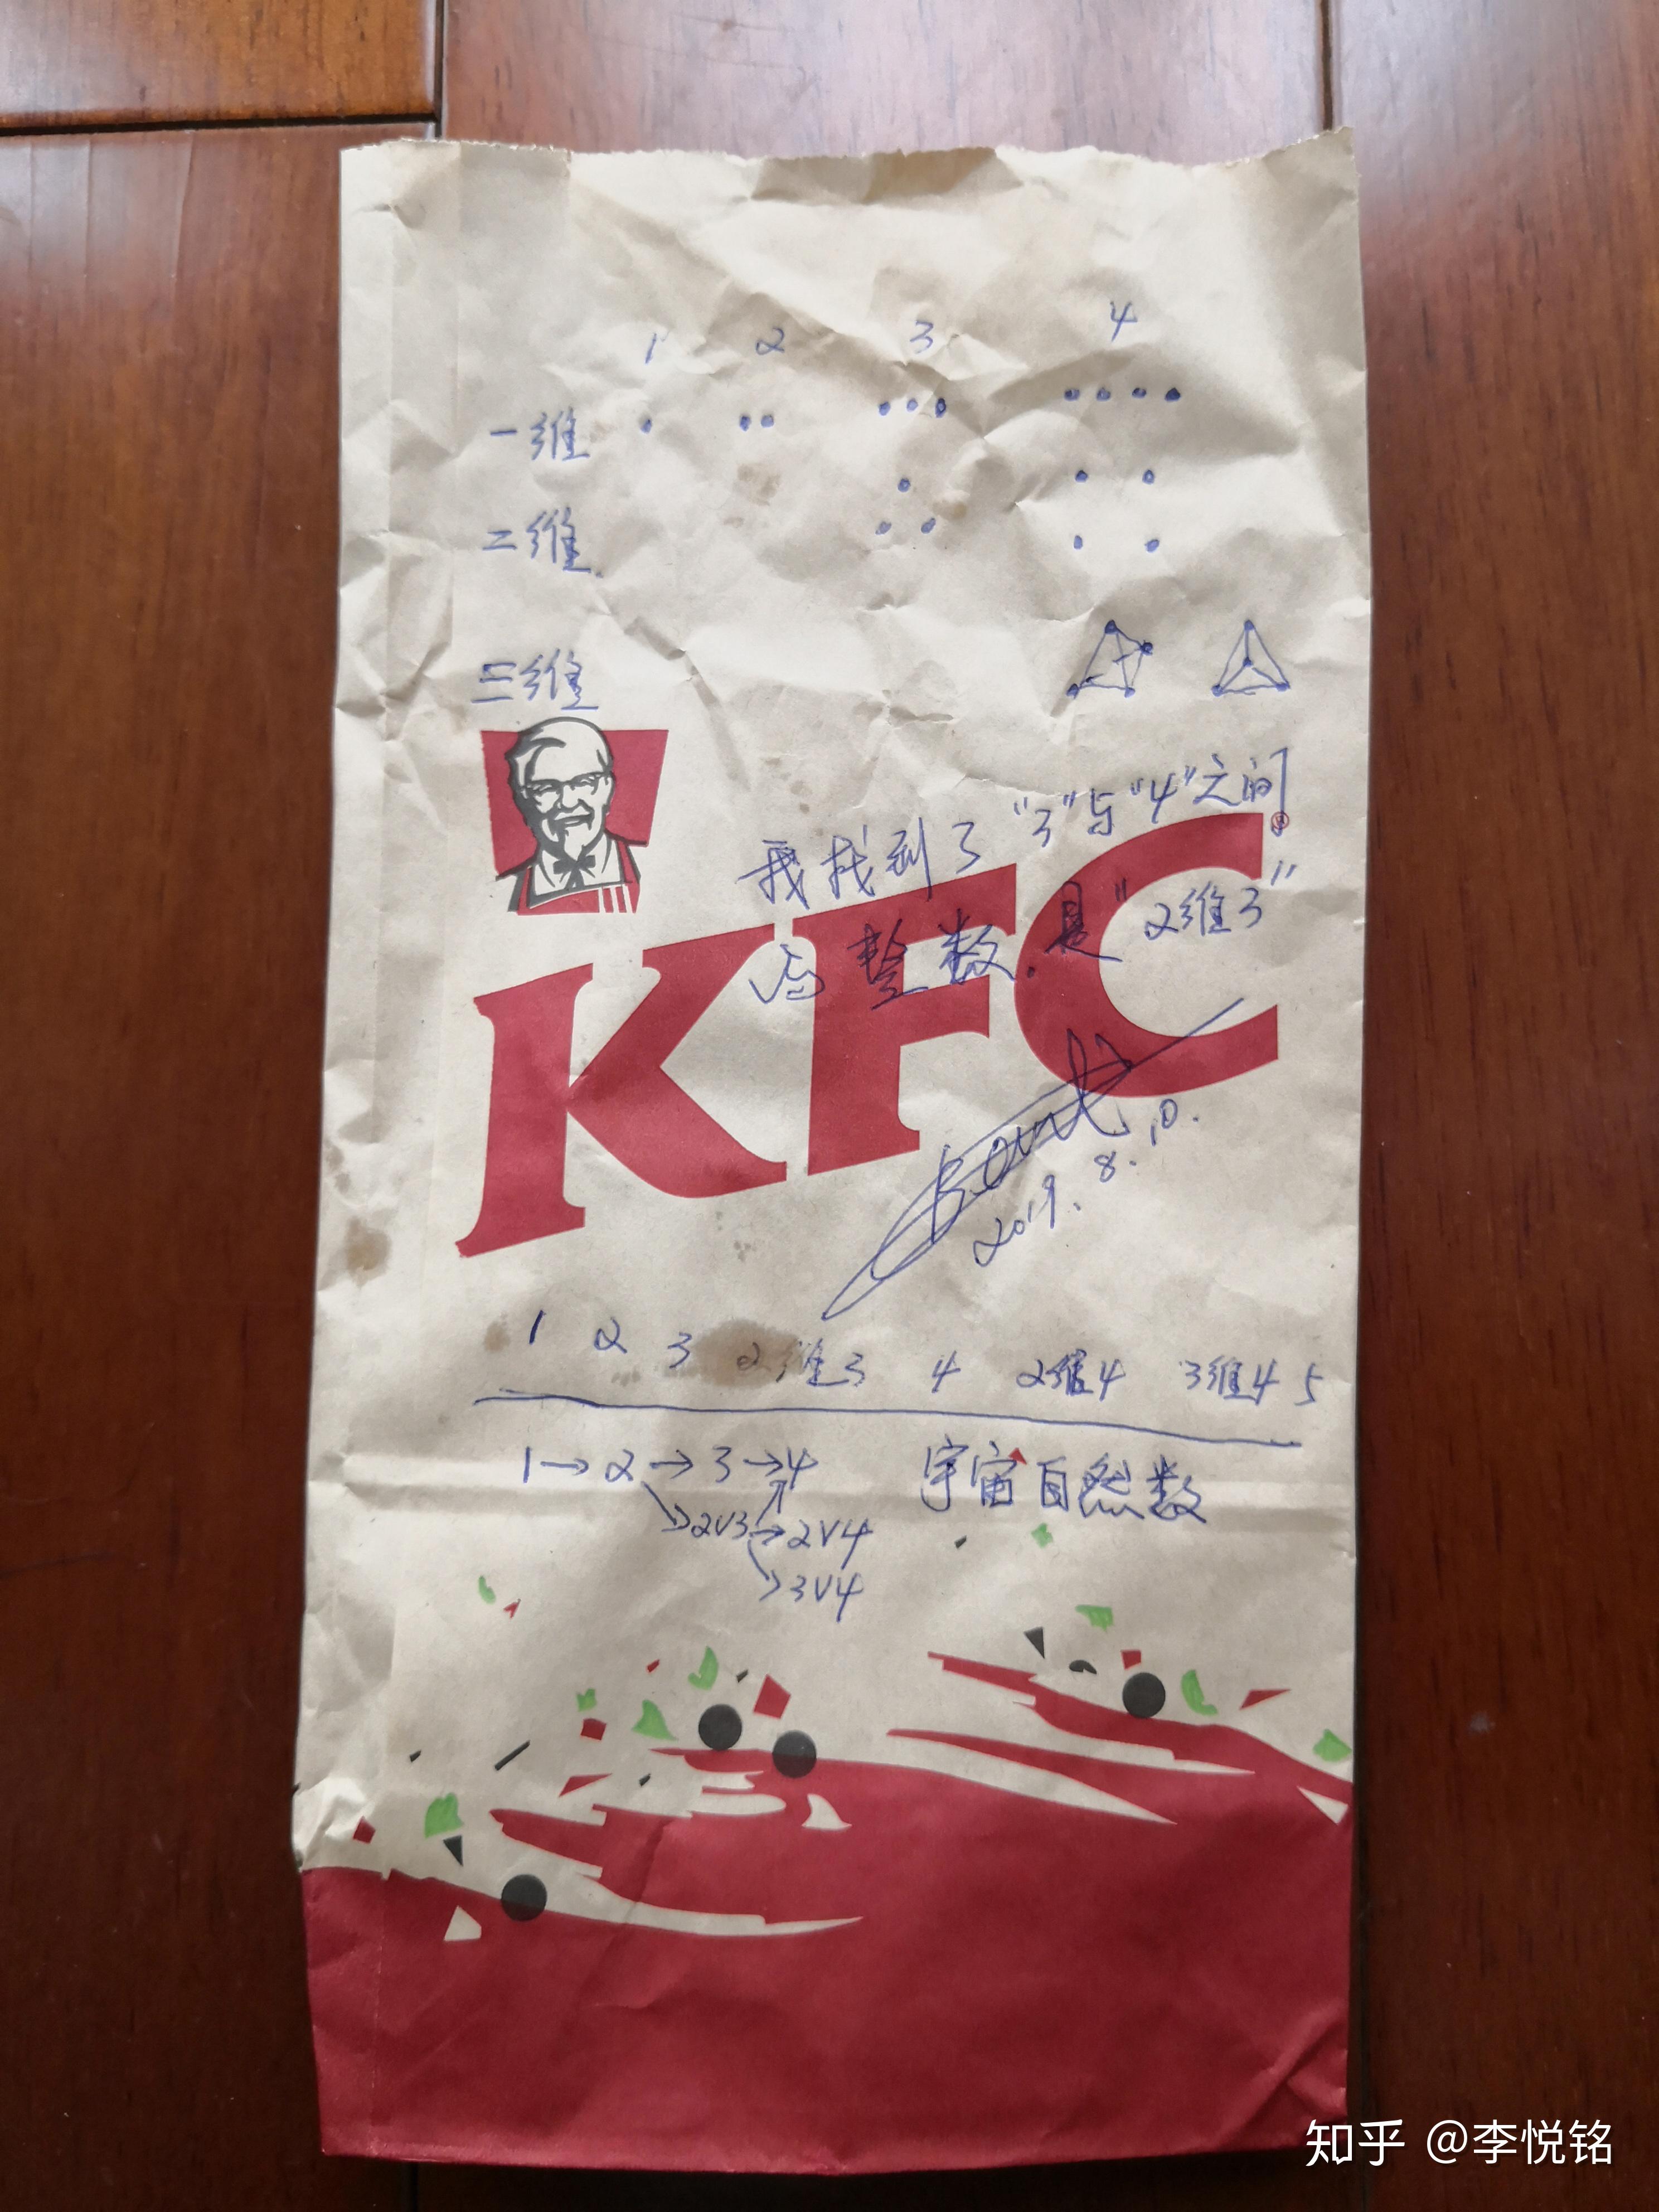 1 2 3 4
一维
二维.
三维
我找到了“3”与“4”之间
的整数.是“2维3”
®
KFC
2019.8.10.
1 2 3 2维3 4 2维4 3维4 5
1→2→3→4 宇宙自然数
2V3→2V4
3V4
知乎 @李悦铭